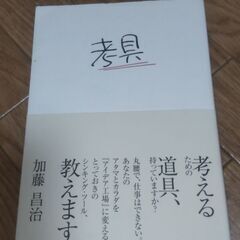 考具
考える
ための
道具、
持っていますか？
丸腰で、仕事はできない。
あなたの
アタマとカラダを
『アイデア工場』に変える
とっておきの
シンキング・ツール、
教えます
加藤昌治